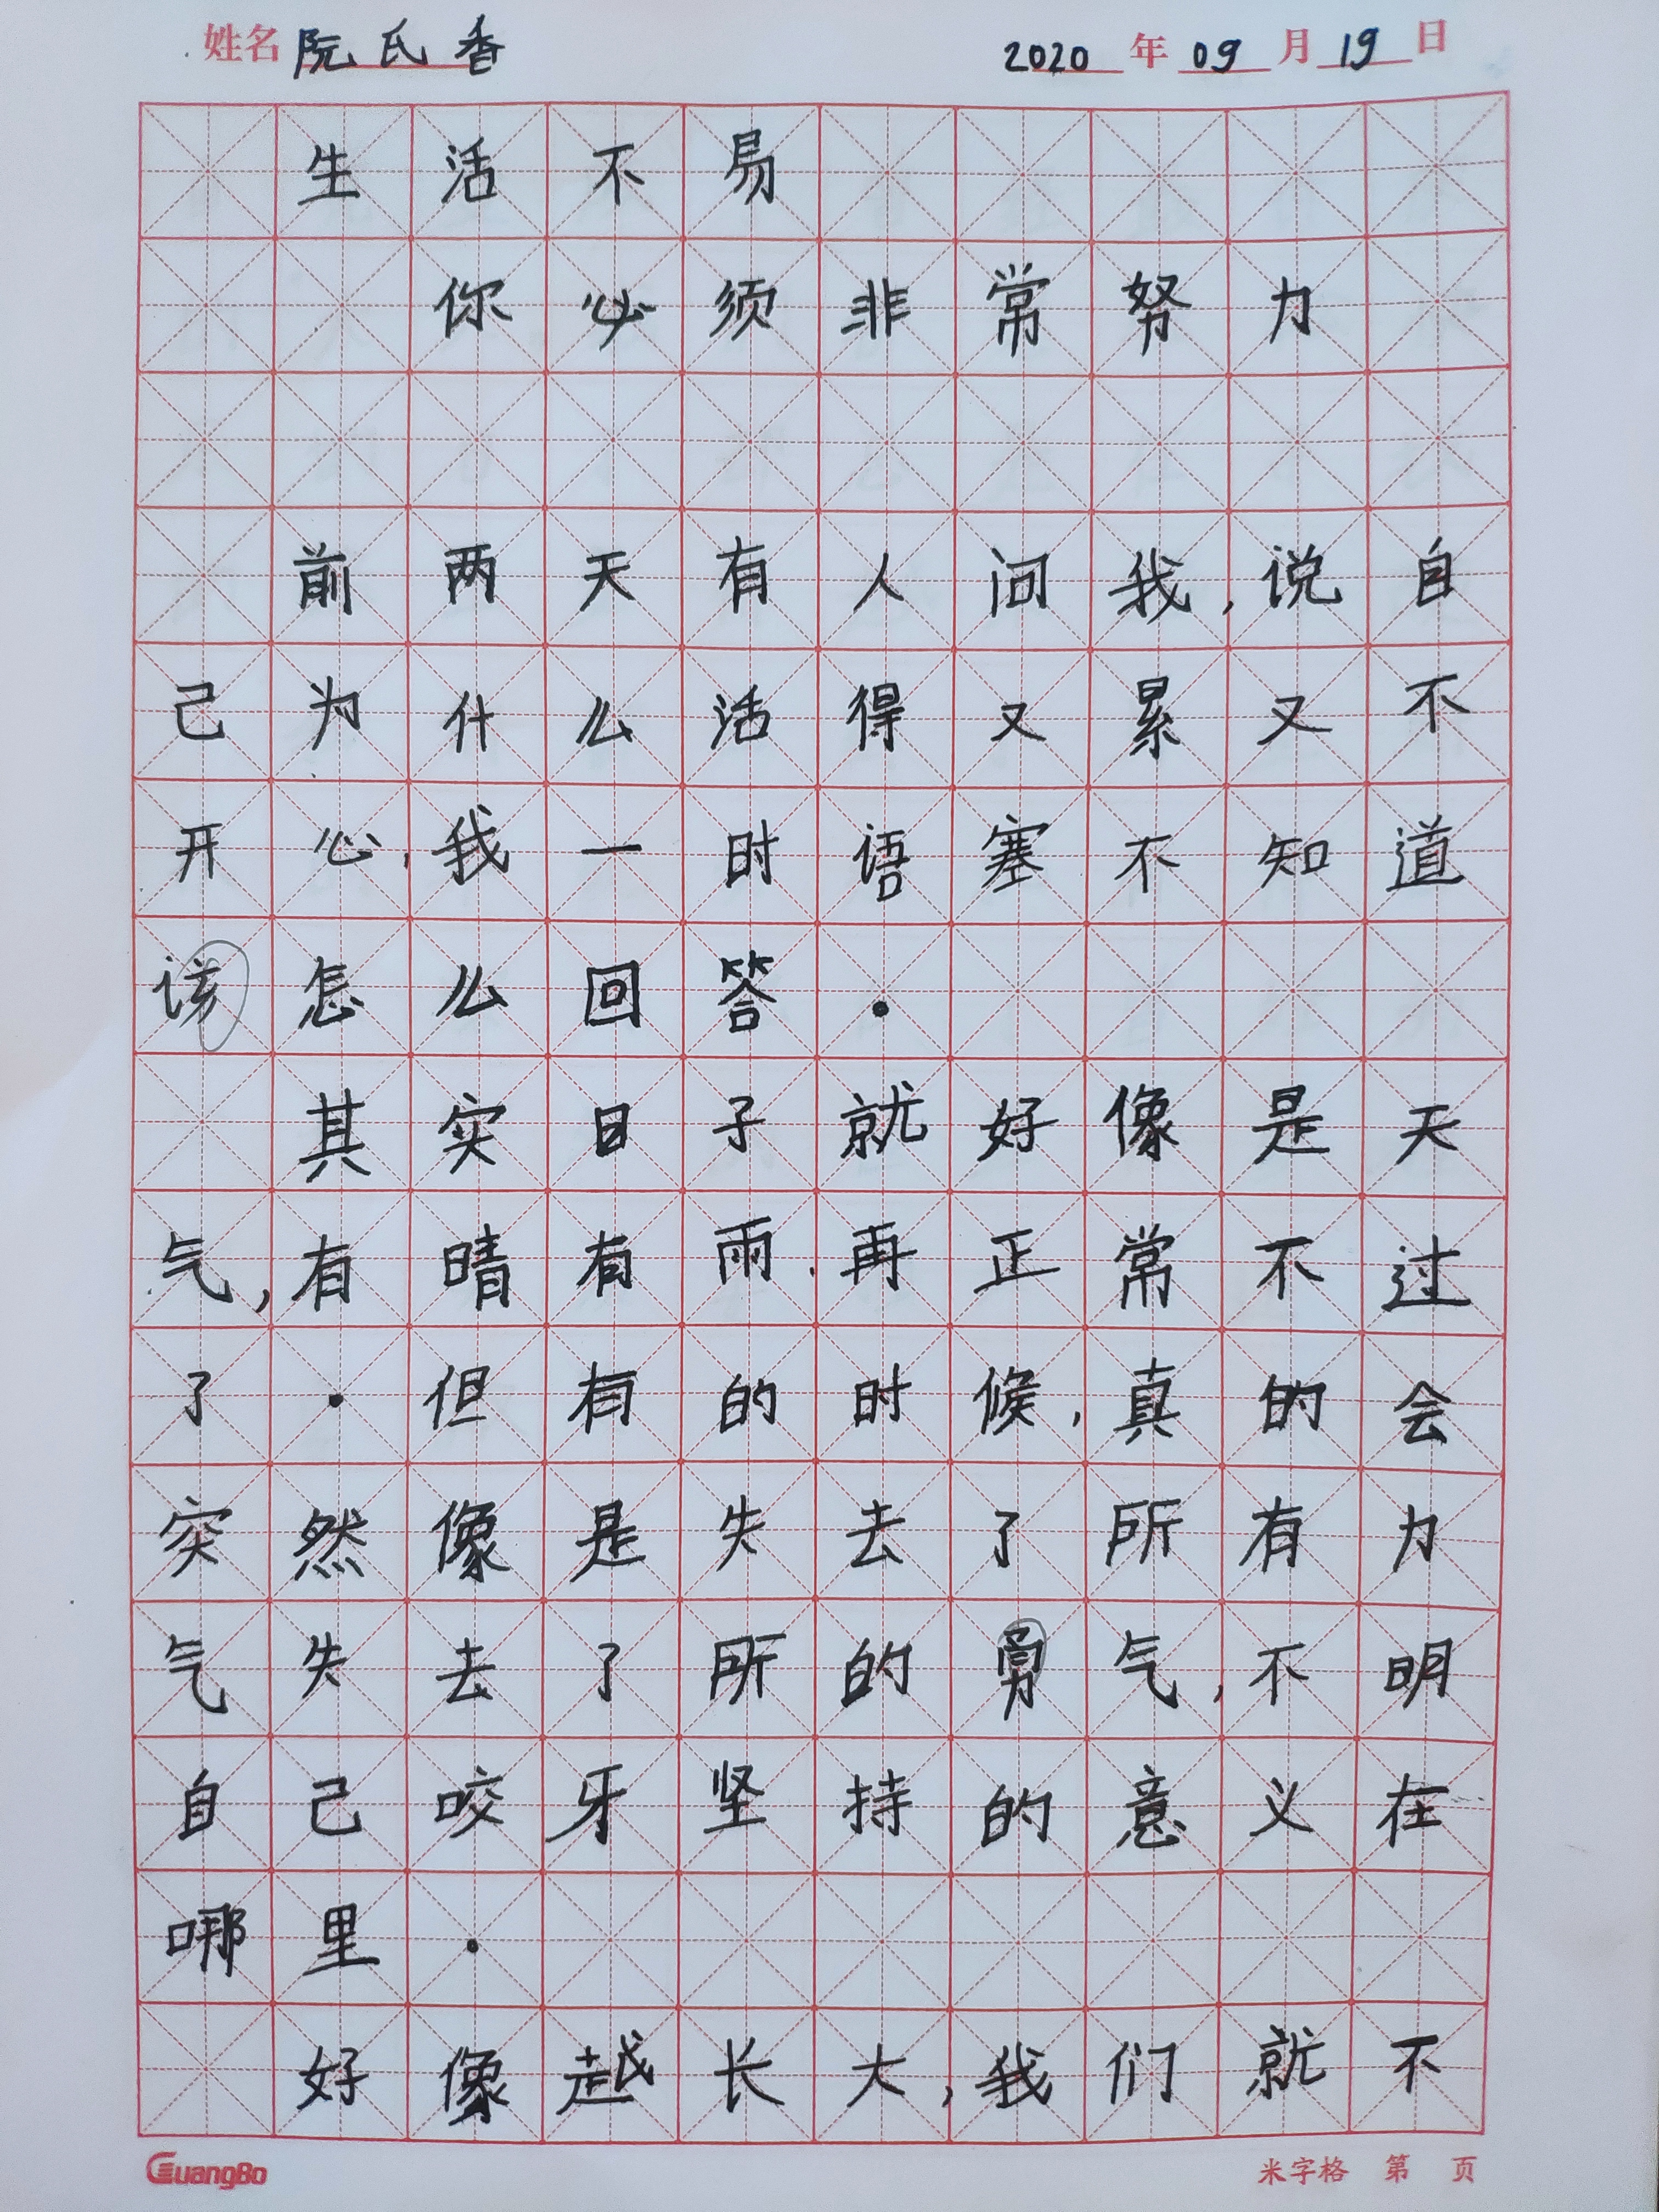 姓名 阮氏香 2020年09月19日
生活不易
你必须非常努力
前两天有人问我,说自
己为什么活得又累又不
开心,我一时语塞不知道
该怎么回答.
其实日子就好像是天
气,有晴有雨,再正常不过
了.但有的时候,真的会
突然像是失去了所有力
气失去了所的勇气,不明
自己咬牙坚持的意义在
哪里.
好像越长大,我们就不
GuangBo 米字格 第 页